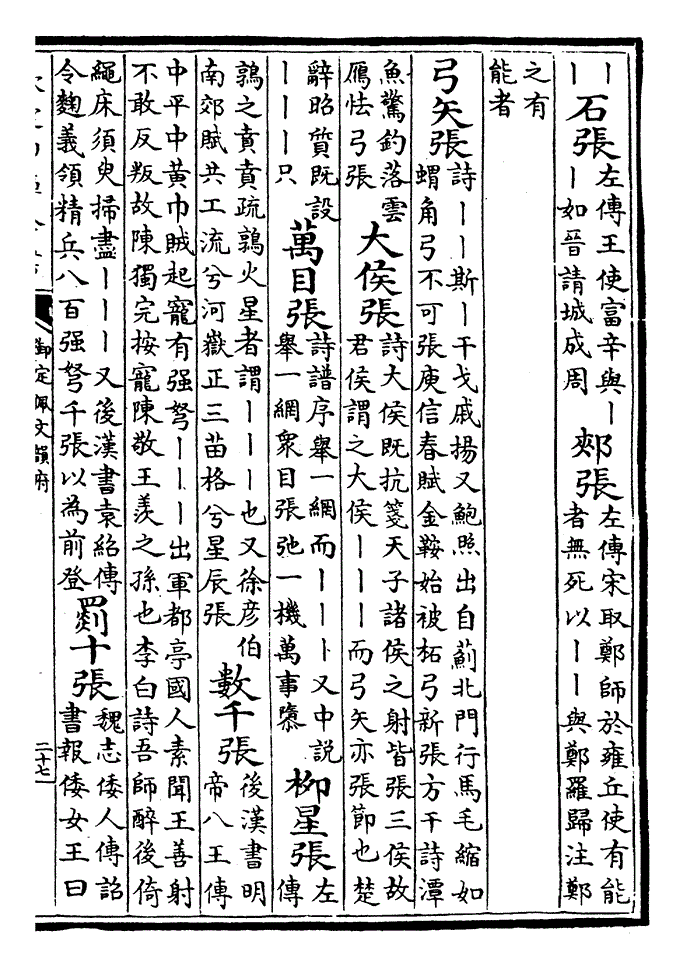 丨丨石張左傳王使富辛與丨丨如晉請城成周郟張左傳宋取鄭師於雍丘使有能者無死以丨丨與鄭羅歸注鄭
之有能者
弓矢張詩丨丨斯丨干戈戚揚又鮑照出自薊北門行馬毛縮如蝟角弓不可張庾信春賦金鞍始被柘弓新張方干詩潭
魚驚釣落雲鴈怯弓張大侯張詩大侯既抗箋天子諸侯之射皆張三侯故君侯謂之大侯丨丨丨而弓矢亦張節也楚
辭昭質既設丨丨丨只萬目張詩譜序舉一綱而丨丨丨卜又中說舉一網衆目張弛一機萬事隳栁星張左傳
鶉之賁賁疏鶉火星者謂丨丨丨也又徐彦伯南郊賦共工流兮河嶽正三苗格兮星辰張數千張後漢書明帝八王傳
中平中黃巾賊起寵有强弩丨丨丨出軍都亭國人素聞王善射不敢反叛故陳獨完按寵陳敬王羨之孫也李白詩吾師醉後倚
繩床須臾掃盡丨丨丨又後漢書袁紹傳令麴義領精兵八百强弩千張以為前登罽十張魏志倭人傳詔書報倭女王曰
御定佩文韻府
二十七